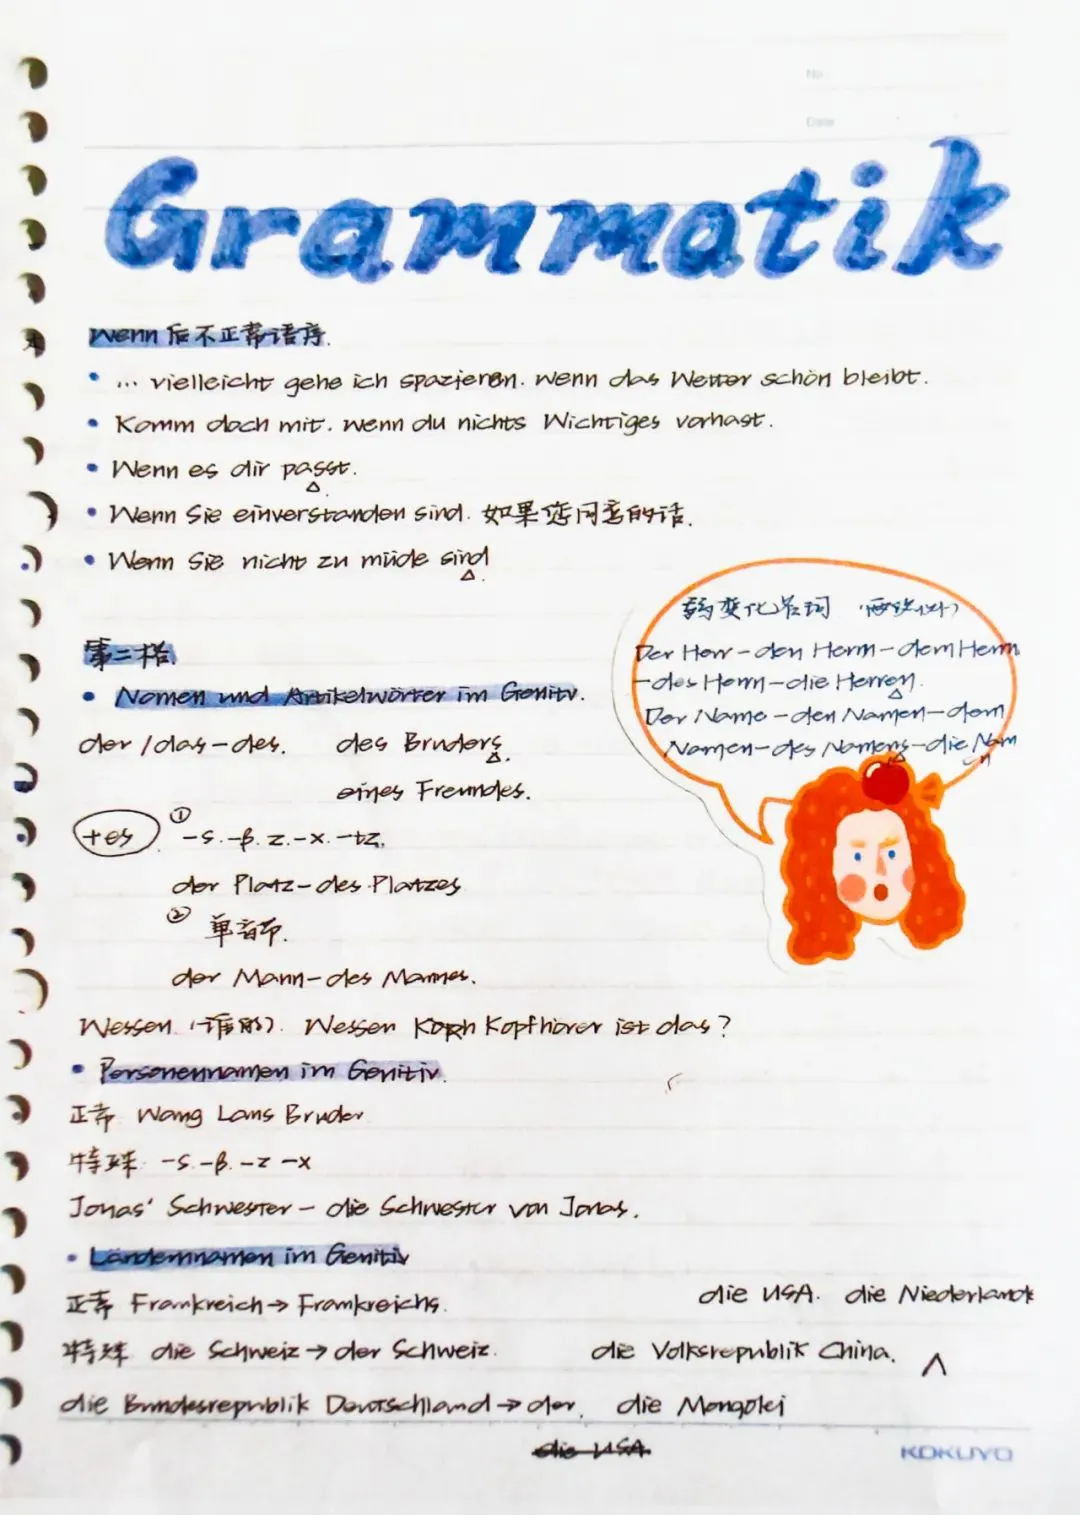 No
Date
Grammatik
Wenn 后不正常语序.
... vielleicht gehe ich spazieren. wenn das Wetter schön bleibt.
Komm doch mit. wenn du nichts Wichtiges vorhast.
Wenn es dir passt.
Wenn Sie einverstanden sind. 如果您同意的话.
Wenn Sie nicht zu müde sind
弱变化名词
Der Herr - den Herrn - dem Herrn
- des Herrn - die Herren.
Der Name - den Namen - dem
Namen - des Namens - die Nam
n
第二格
Nomen und Artikelwörter im Genitiv.
der / das - des. des Bruders.
eines Freundes.
+es ① -s. -β. z. -x. -tz.
der Platz - des Platzes
② 单音节.
der Mann - des Mannes.
Wessen (谁的). Wessen Kopfhörer ist das?
Personennamen im Genitiv.
正常 Wang Lans Bruder
特殊 -s. -β. -z -x
Jonas' Schwester - die Schwester von Jonas.
Ländernnamen im Genitiv
正常 Frankreich → Frankreichs. die USA. die Niederlande
特殊 die Schweiz → der Schweiz. die Volksrepublik China.
die Bundesrepublik Deutschland → der. die Mongolei
die USA
KOKUYO